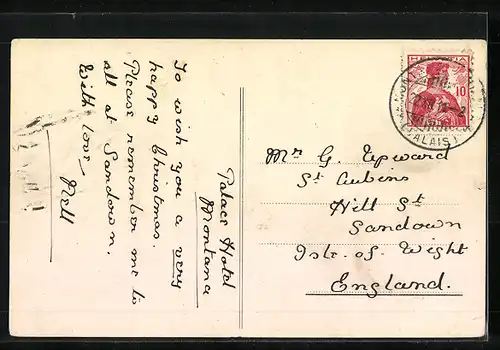 To wish you a very
happy Christmas.
Please remember me to
all at Sandown.
With love
Nell
Palace Hotel
Montana
HELVETIA
10
(VALAIS)
Mr G. Upward
St Aubins
Hill St
Sandown
Isle. of. Wight
England.